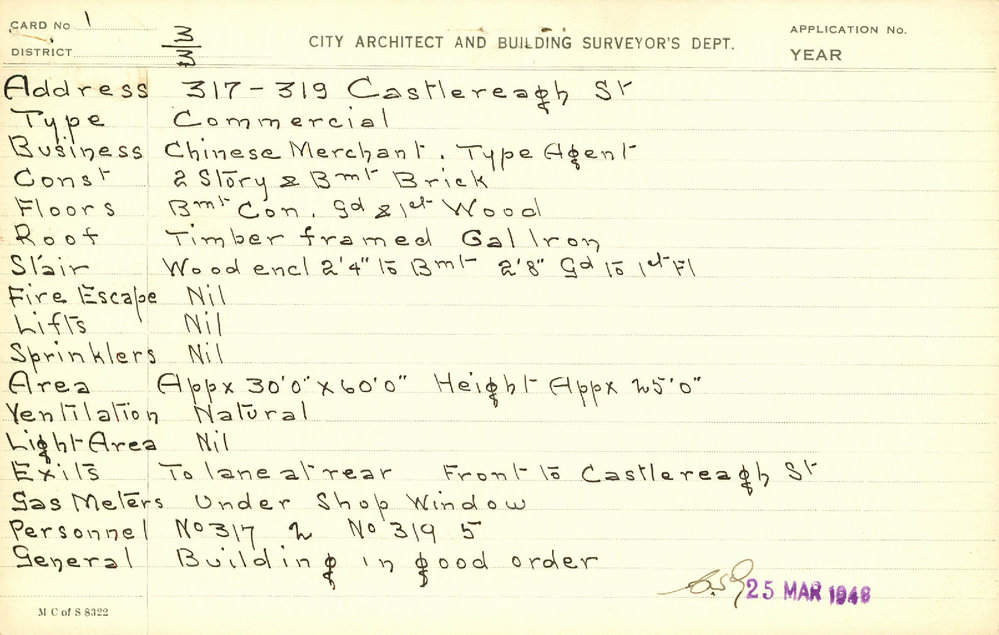 CARD No 1
DISTRICT
CITY ARCHITECT AND BUILDING SURVEYOR'S DEPT.
APPLICATION No.
YEAR
Address 317-319 Castlereagh St
Type Commercial
Business Chinese Merchant. Type Agent
Const 2 Story & Bmt Brick
Floors Bmt Con. Gd & 1st Wood
Roof Timber framed Gal Iron
Stair Wood encl 2'4" to Bmt 2'8" Gd to 1st Fl
Fire Escape Nil
Lifts Nil
Sprinklers Nil
Area Appx 30'0" x 60'0" Height Appx 25'0"
Ventilation Natural
Light Area Nil
Exits To lane at rear Front to Castlereagh St
Gas Meters Under Shop Window
Personnel No 317 2 No 319 5
General Building in good order
25 MAR 1948
M C of S 8322